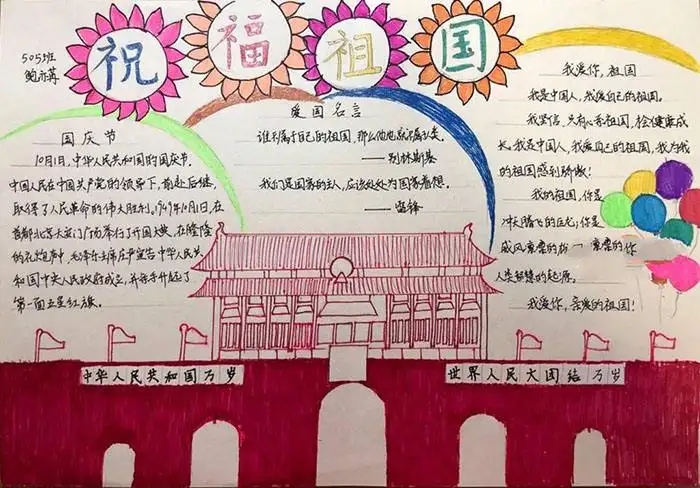 祝福祖国
505班
鲍亦苒
国庆节
10月1日,中华人民共和国的国庆节.
中国人民在中国共产党的领导下,前赴后继,
取得了人民革命的伟大胜利。1949年10月1日,在
首都北京天安门广场举行了开国大典,在隆隆
的礼炮声中,毛泽东主席庄严宣告中华人民共
和国中央人民政府成立,并亲手升起了
第一面五星红旗。
爱国名言
谁不属于自己的祖国,那么他也就不属人类。
——别林斯基
我们是国家的主人,应该处处为国家着想。
——雷锋
我爱你,祖国
我是中国人,我爱自己的祖国。
我坚信,只有心系祖国,才会健康成
长。我是中国人,我爱自己的祖国,我为我
的祖国感到骄傲!
我的祖国,你是
冲天腾飞的巨龙;你是
威风凛凛的
你
人类智慧的起源。
我爱你,亲爱的祖国!
中华人民共和国万岁
世界人民大团结万岁